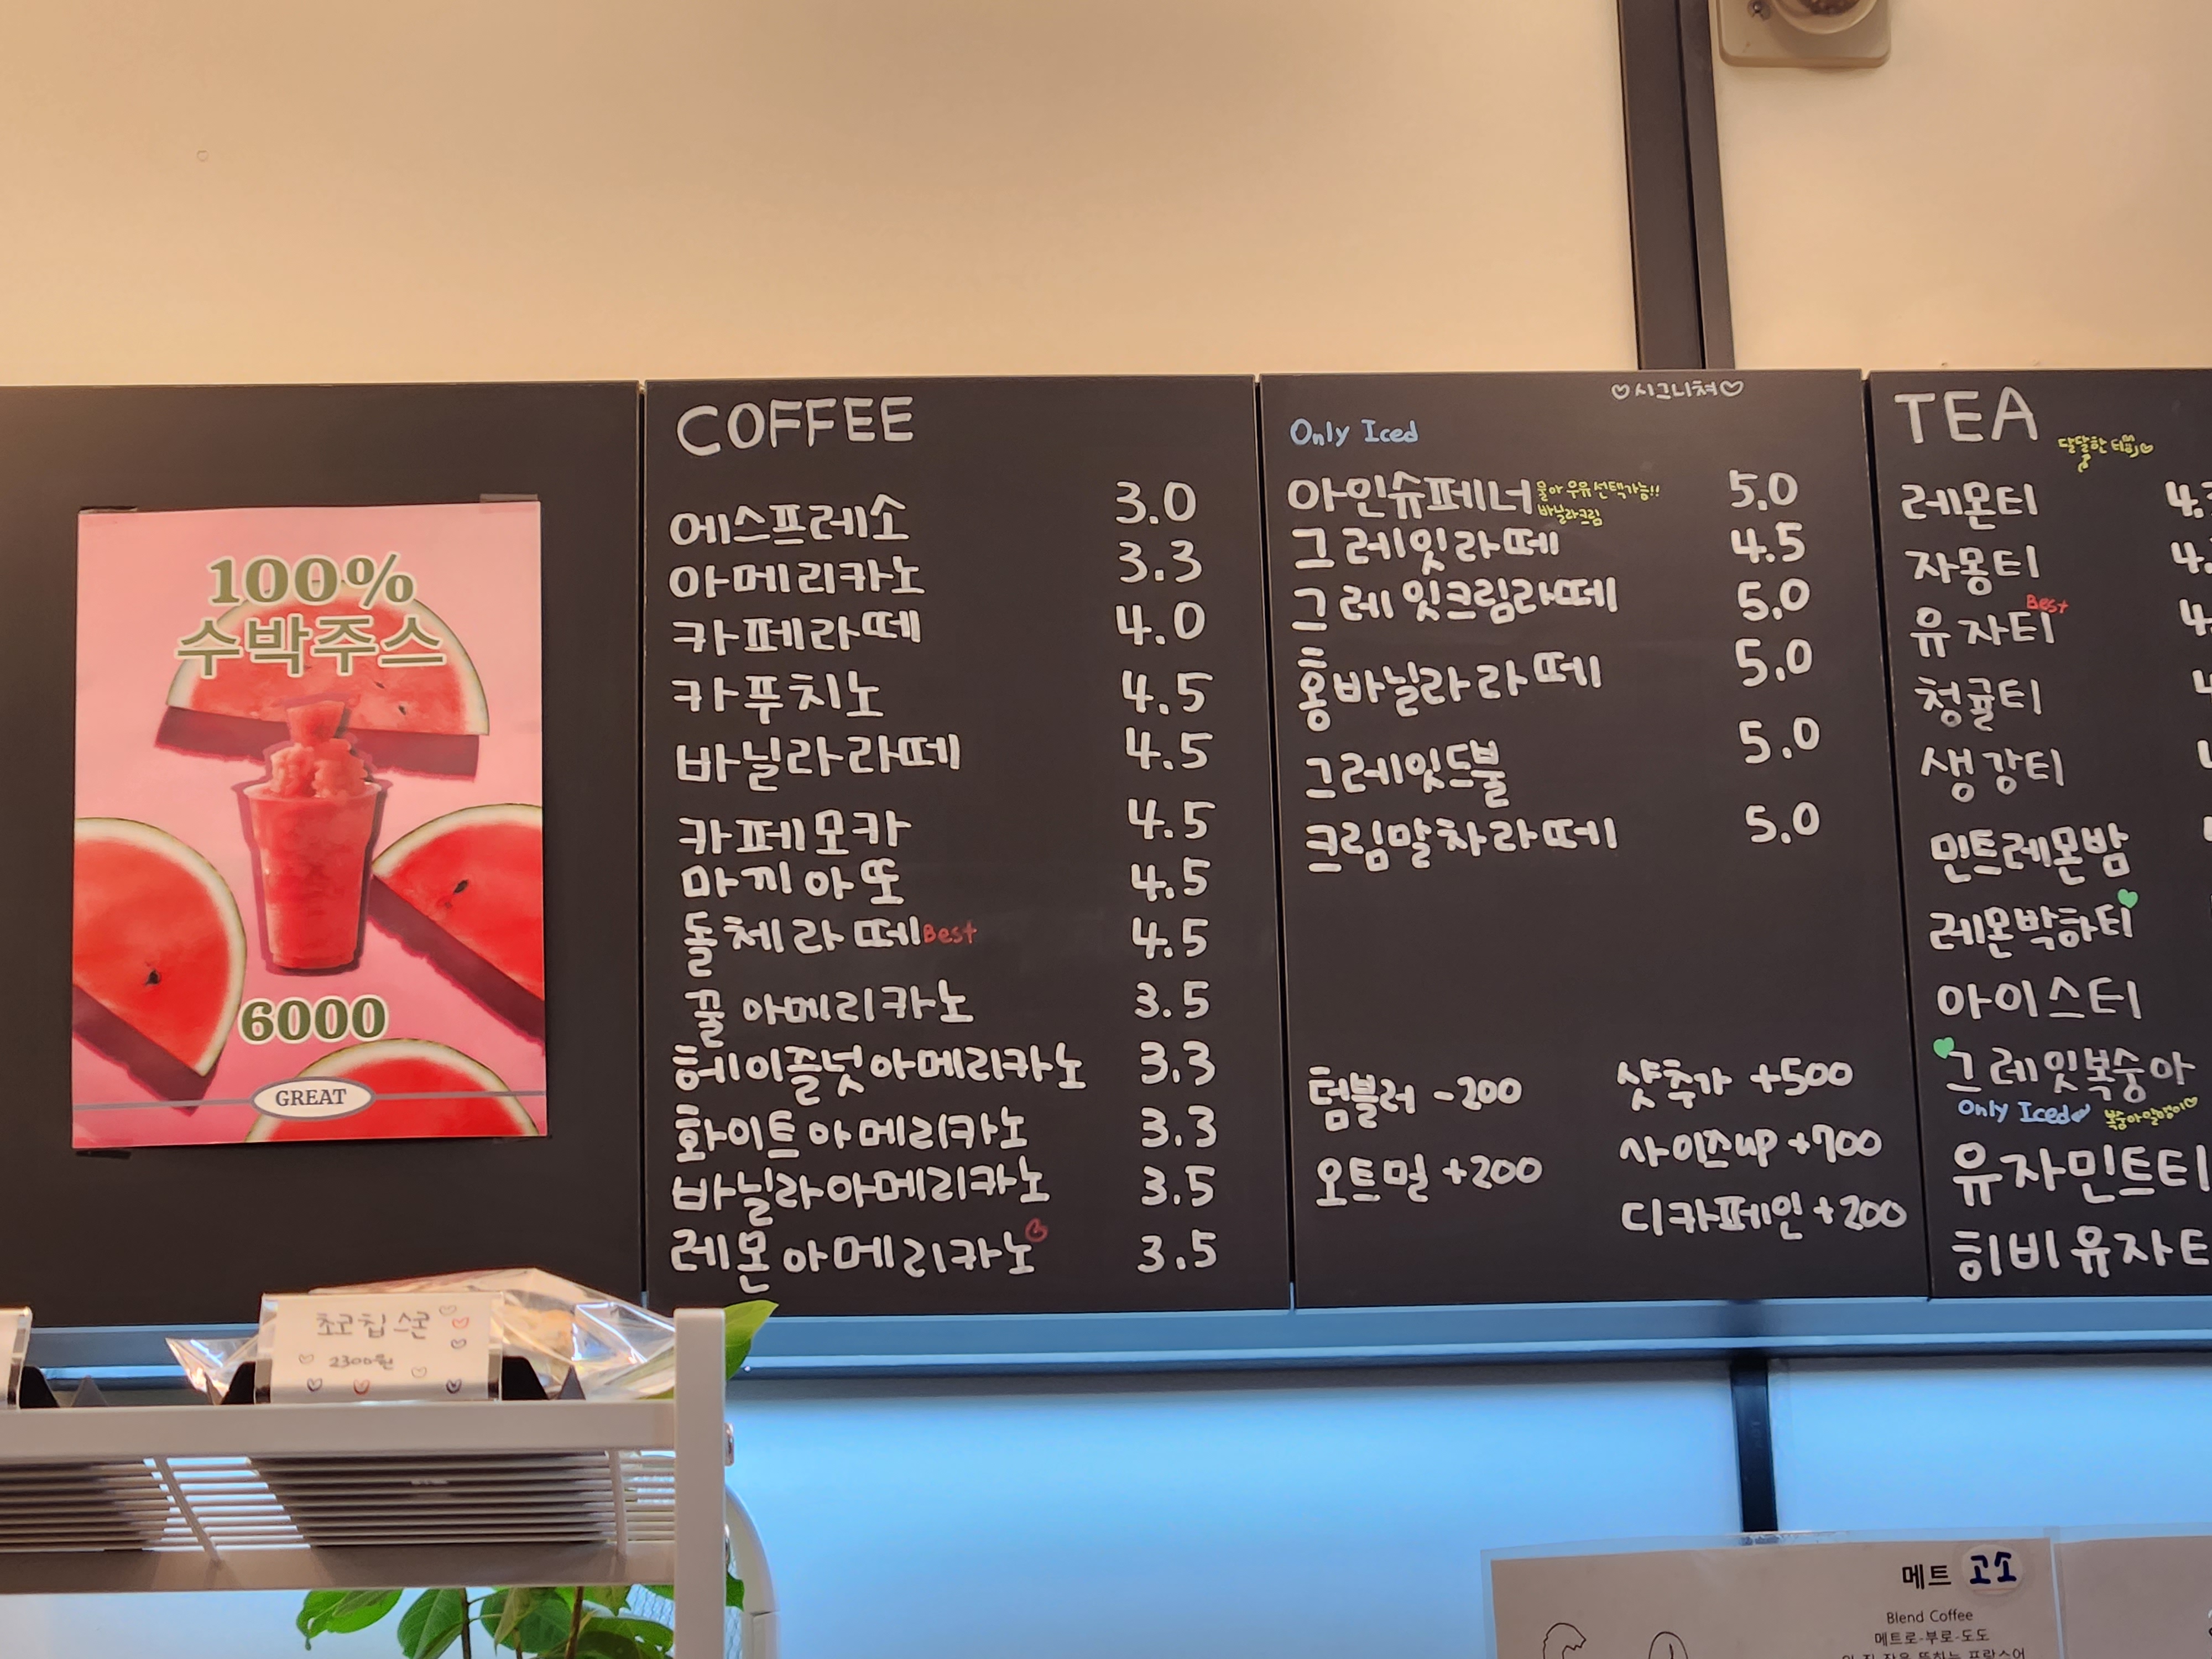 100%
수박주스
6000
GREAT
COFFEE
에스프레소 3.0
아메리카노 3.3
카페라떼 4.0
카푸치노 4.5
바닐라라떼 4.5
카페모카 4.5
마끼아또 4.5
돌체라떼 Best 4.5
꿀 아메리카노 3.5
헤이즐넛아메리카노 3.3
화이트아메리카노 3.3
바닐라아메리카노 3.5
레몬아메리카노 3.5
♡시그니쳐♡
Only Iced
아인슈페너 5.0
우유 선택가능!!
바닐라크림
그레잇라떼 4.5
그레잇크림라떼 5.0
홍바닐라라떼 5.0
그레잇드불 5.0
크림말차라떼 5.0
텀블러 -200
오트밀 +200
샷추가 +500
사이즈up +700
디카페인 +200
TEA
달달한 티
레몬티
자몽티
Best
유자티
청귤티
생강티
민트레몬밤
레몬박하티
아이스티
그레잇복숭아
Only Iced
복숭아알맹이♡
유자민트티
히비유자티
초코칩 스콘
2300원
메트 고소
Blend Coffee
메트로-부로-도도